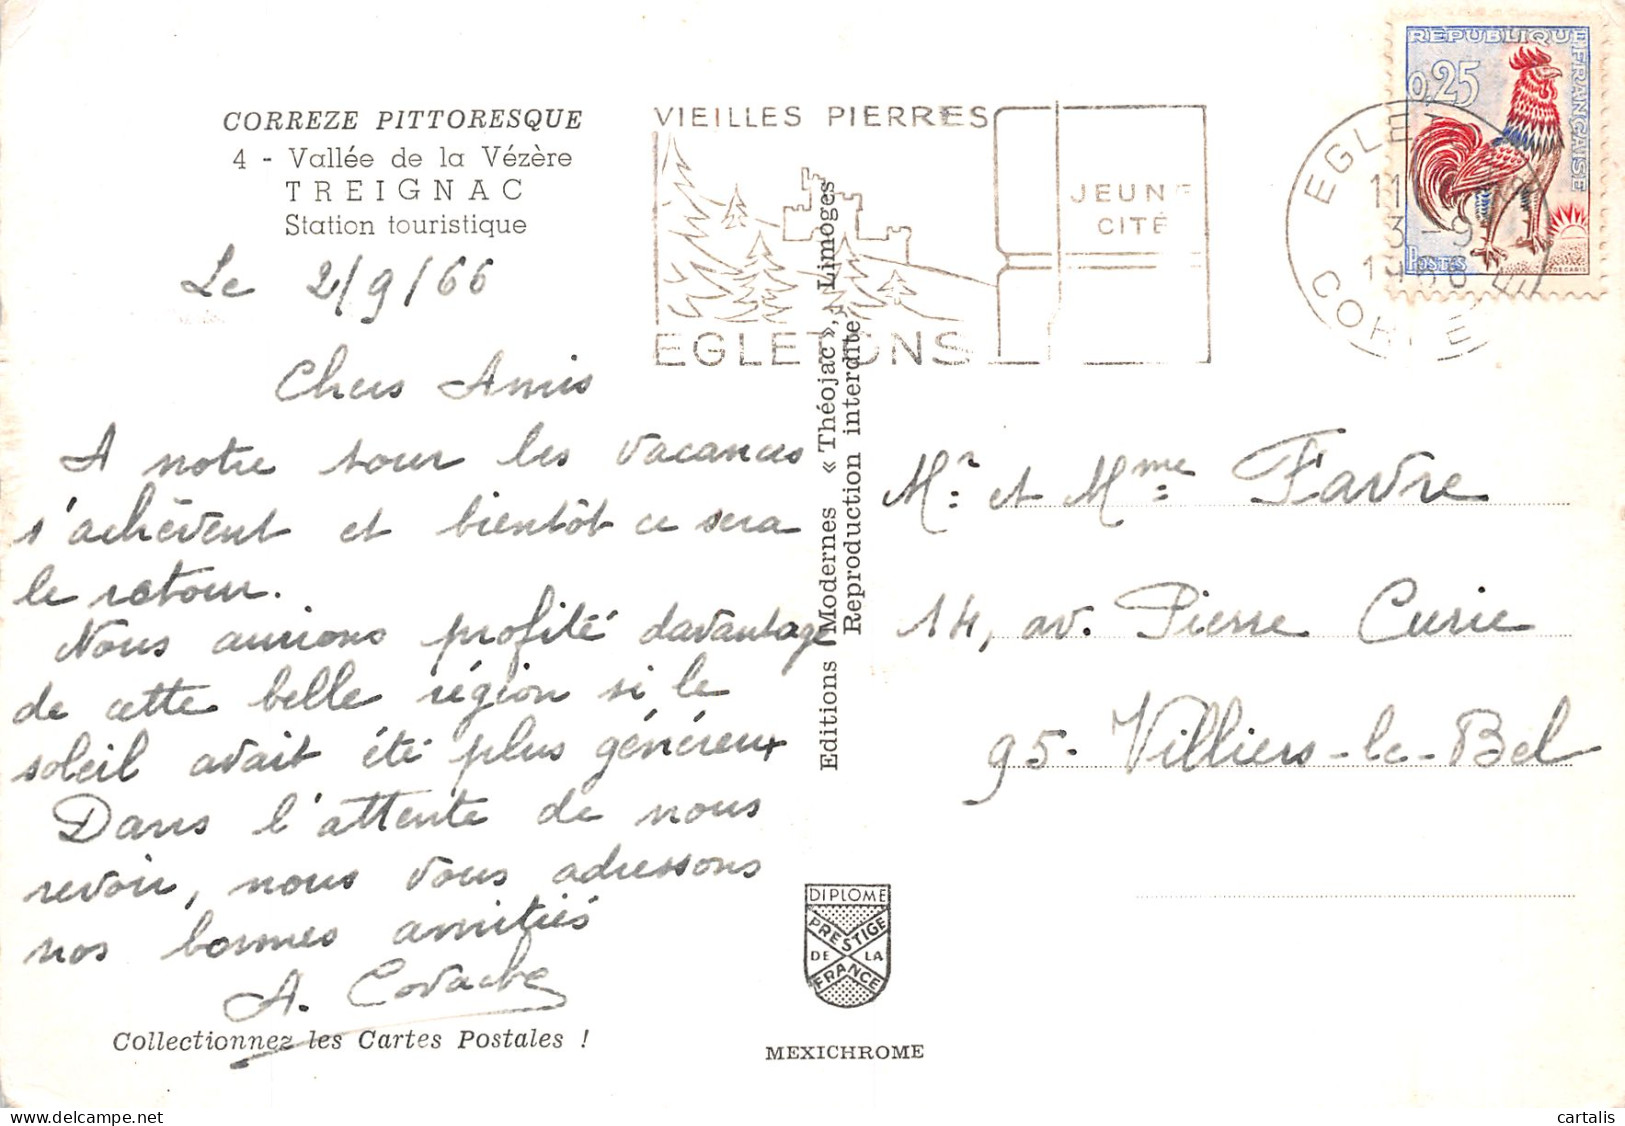 CORREZE PITTORESQUE
4 - Vallée de la Vézère
TREIGNAC
Station touristique
Le 2/9/66
Chers Amis
A notre tour les vacances
s'achèvent et bientôt ce sera
le retour.
Nous aurions profité davantage
de cette belle région si le
soleil avait été plus généreux
Dans l'attente de nous
revoir, nous vous adressons
nos bonnes amitiés
A.
Collectionnez les Cartes Postales !
VIEILLES PIERRES
JEUNE
CITÉ
EGLETONS
Editions Modernes « Théojac », Limoges
Reproduction interdite
DIPLOME
PRESTIGE
DE LA
FRANCE
MEXICHROME
REPUBLIQUE FRANÇAISE
0,25
POSTES
DECARIS
EGLE
11
3-9
1966
CORREZE
Mr. et Mme Favre
14, av. Pierre Curie
95. Villiers-le-Bel
cartalis
delcampe.net